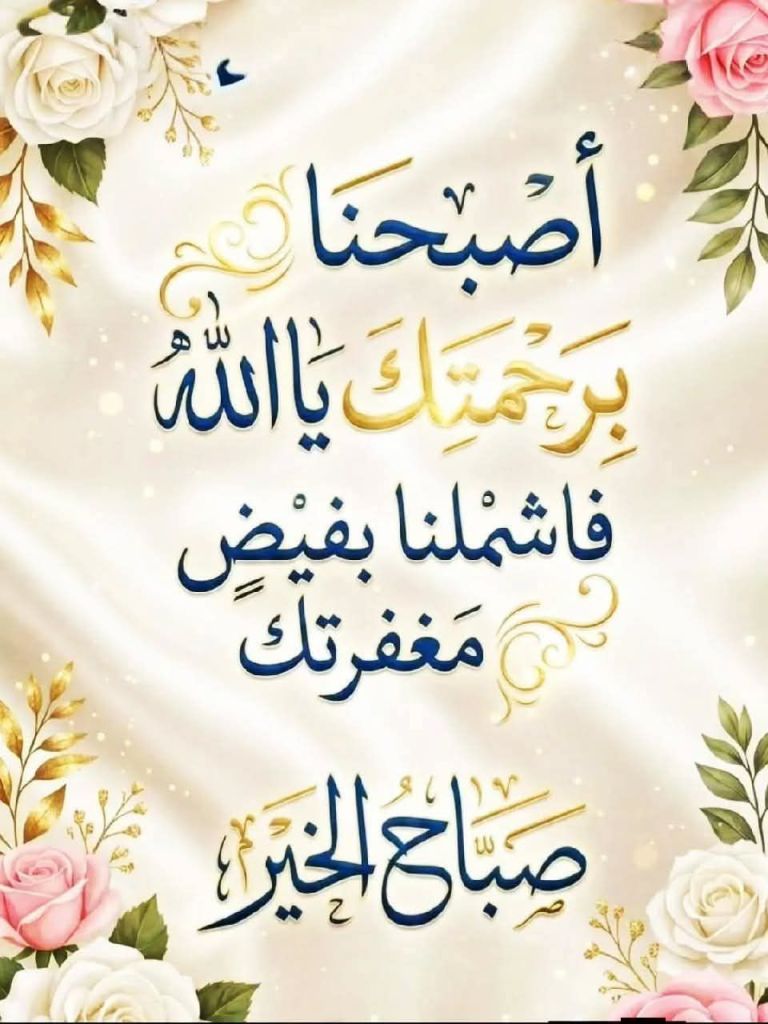 أصْبحنَا
بِرَحْمَتِكَ يَااللّٰهُ
فاشمْلنا بفيْضٍ
مَغفرتك
صَبَّاحُ الخَيْر